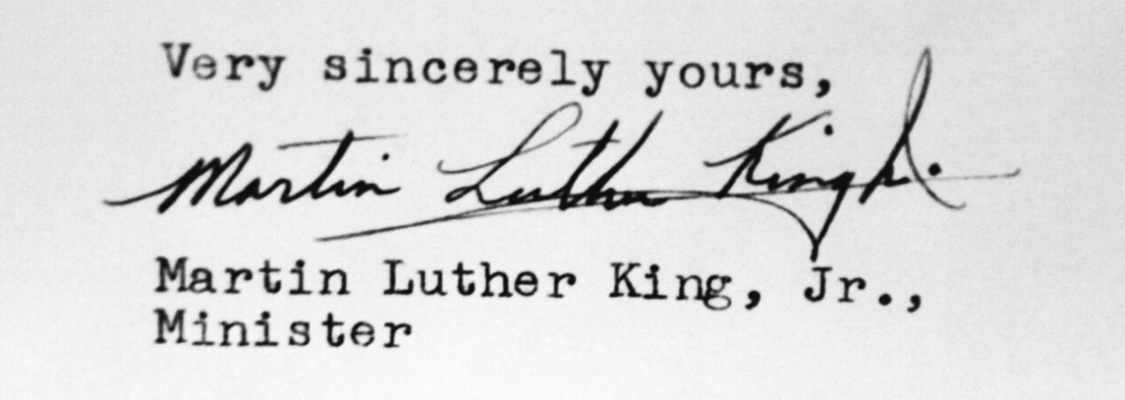 Very sincerely yours,
Martin Luther King Jr.
Martin Luther King, Jr.,
Minister